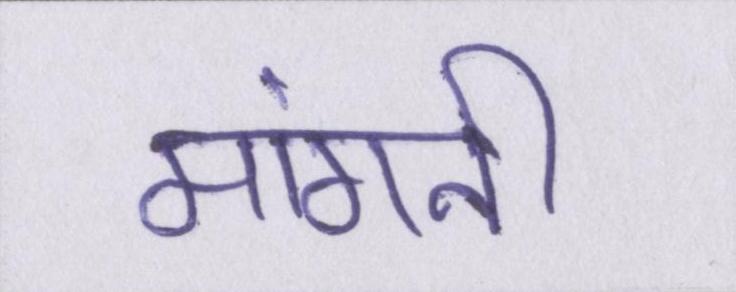 मांगनी